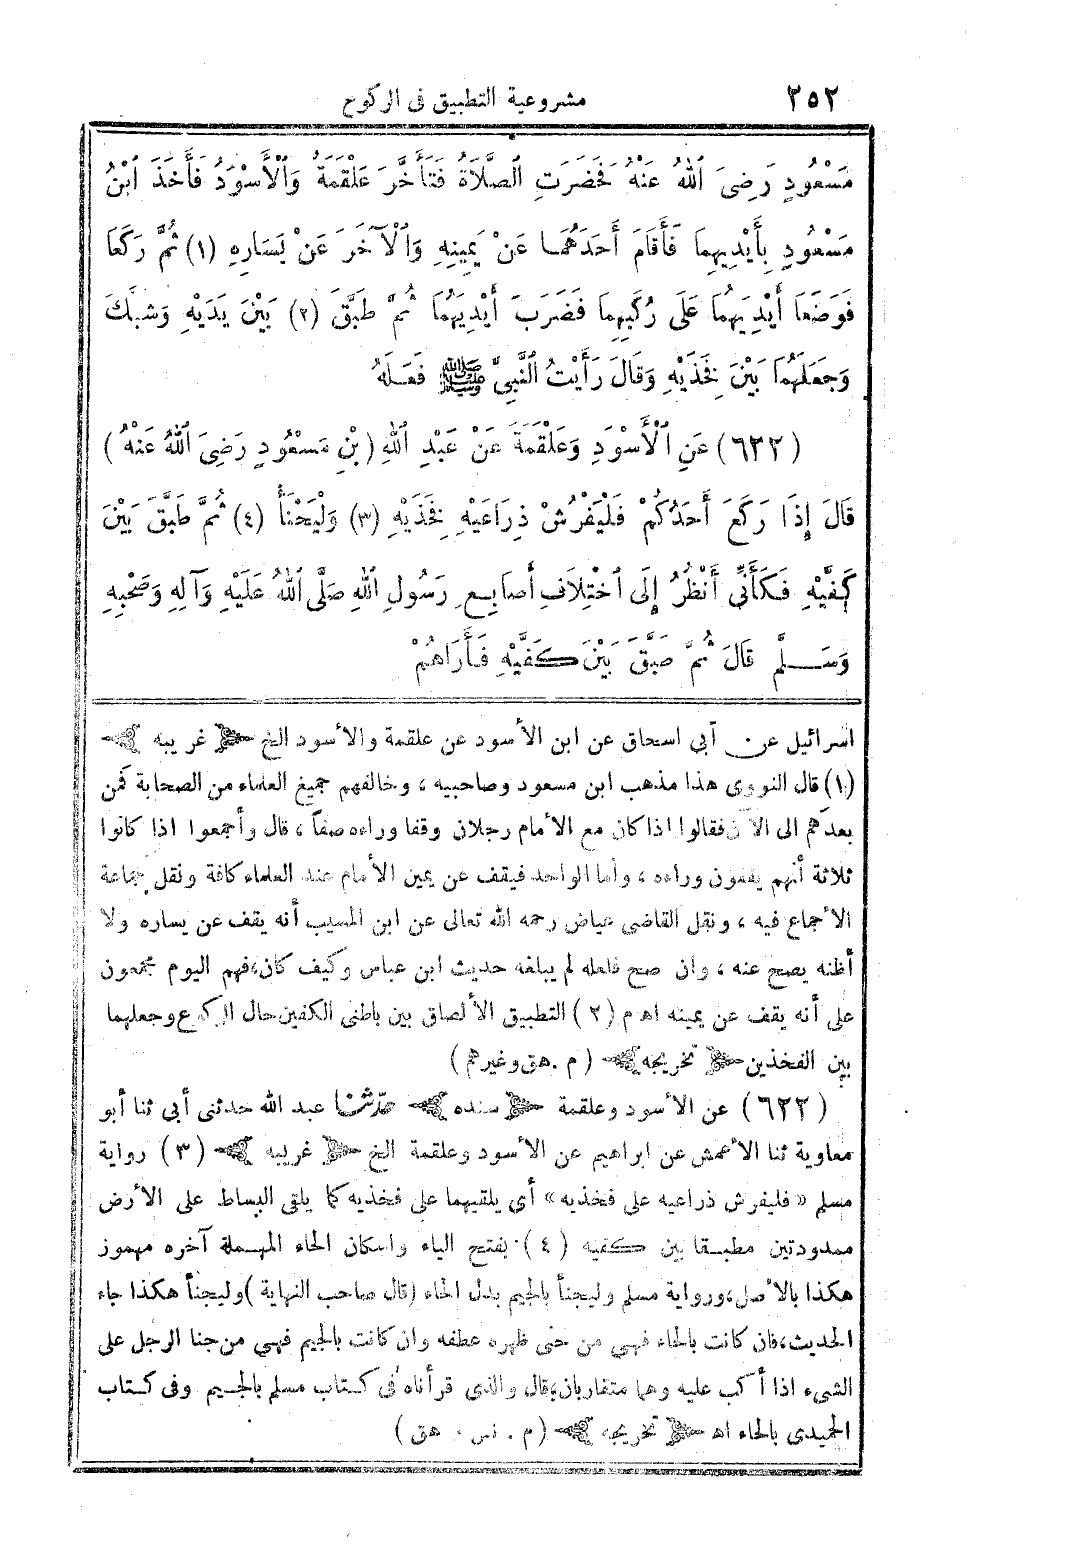 ٢٥٢ مشروعية التطبيق فى الركوع
مَسْعُودٍ رَضِىَ ٱللهُ عَنْهُ فَحَضَرَتِ ٱلصَّلَاةُ فَتَأَخَّرَ عَلْقَمَةُ وَٱلْأَسْوَدُ فَأَخَذَ ٱبْنُ
مَسْعُودٍ بِأَيْدِيهِمَا فَأَقَامَ أَحَدَهُمَا عَنْ يَمِينِهِ وَٱلْآخَرَ عَنْ يَسَارِهِ (١) ثُمَّ رَكَعَا
فَوَضَعَا أَيْدِيَهُمَا عَلَى رُكَبِهِمَا فَضَرَبَ أَيْدِيَهُمَا ثُمَّ طَبَّقَ (٢) بَيْنَ يَدَيْهِ وَشَبَّكَ
وَجَعَلَهُمَا بَيْنَ فَخَذَيْهِ وَقَالَ رَأَيْتُ ٱلنَّبِىَّ ﷺ فَعَلَهُ
(٦٢٢) عَنِ ٱلْأَسْوَدِ وَعَلْقَمَةَ عَنْ عَبْدِ ٱللهِ (بْنِ مَسْعُودٍ رَضِىَ ٱللهُ عَنْهُ)
قَالَ إِذَا رَكَعَ أَحَدُكُمْ فَلْيَفْرُشْ ذِرَاعَيْهِ فَخَذَيْهِ (٣) وَلْيَحْنَأْ (٤) ثُمَّ طَبَّقَ بَيْنَ
كَفَّيْهِ فَكَأَنِّى أَنْظُرُ إِلَى ٱخْتِلَافِ أَصَابِعِ رَسُولِ ٱللهِ صَلَّى ٱللهُ عَلَيْهِ وَآلِهِ وَصَحْبِهِ
وَسَلَّمَ قَالَ ثُمَّ طَبَّقَ بَيْنَ كَفَّيْهِ فَأَرَاهُمْ
اسرائيل عن أبى اسحاق عن ابن الأسود عن علقمة والأسود الخ ﴿ غريبه ﴾
(١) قال النووى هذا مذهب ابن مسعود وصاحبيه ، وخالفهم جميع العلماء من الصحابة فمن
بعدهم الى الآن فقالوا اذا كان مع الأمام رجلان وقفا وراءه صفاً ، قال وأجمعوا اذا كانوا
ثلاثة أنهم يقفون وراءه ، وأما الواحد فيقف عن يمين الأمام عند العلماء كافة ونقل جماعة
الأجماع فيه ، ونقل القاضى عياض رحمه الله تعالى عن ابن المسيب أنه يقف عن يساره ولا
أظنه يصح عنه ، وان صح فلعله لم يبلغه حديث ابن عباس وكيف كان،فهم اليوم مجمعون
على أنه يقف عن يمينه اه م (٢) التطبيق الألصاق بين باطنى الكفين حال الركوع وجعلهما
بين الفخذين ﴿ تخريجه ﴾ (م . هق وغيرهم)
(٦٢٢) عن الأسود وعلقمة ﴿ سنده ﴾ حدّثنا عبد الله حدثنى أبى ثنا أبو
معاوية ثنا الأعمش عن ابراهيم عن الأسود وعلقمة الخ ﴿ غريبه ﴾ (٣) رواية
مسلم « فليفرش ذراعيه على فخذيه » أي يلقيهما على فخذيه كما يلقى البساط على الأرض
ممدودتين مطبقا بين كفيه (٤) بفتح الياء واسكان الحاء المهملة آخره مهموز
هكذا بالأصل،ورواية مسلم وليجنأ بالجيم بدل الحاء (قال صاحب النهاية) وليجنأ هكذا جاء
الحديث،فان كانت بالحاء فهى من حنى ظهره عطفه وان كانت بالجيم فهى من جنا الرجل على
الشىء اذا أكب عليه وهما متقاربان،قال والذى قرأناه فى كتاب مسلم بالجيم وفى كتاب
الحميدى بالحاء اه ﴿ تخريجه ﴾ (م . نس . هق)